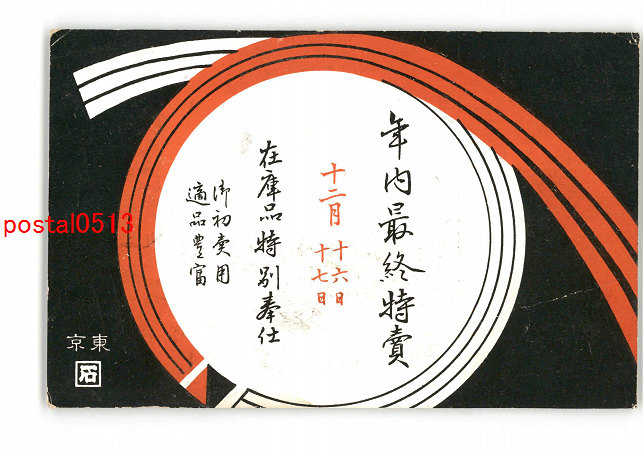 年内最終特賣
十二月十六日
十七日
在庫品特別奉仕
御初売用
適品豊富
東京
石
postal0513